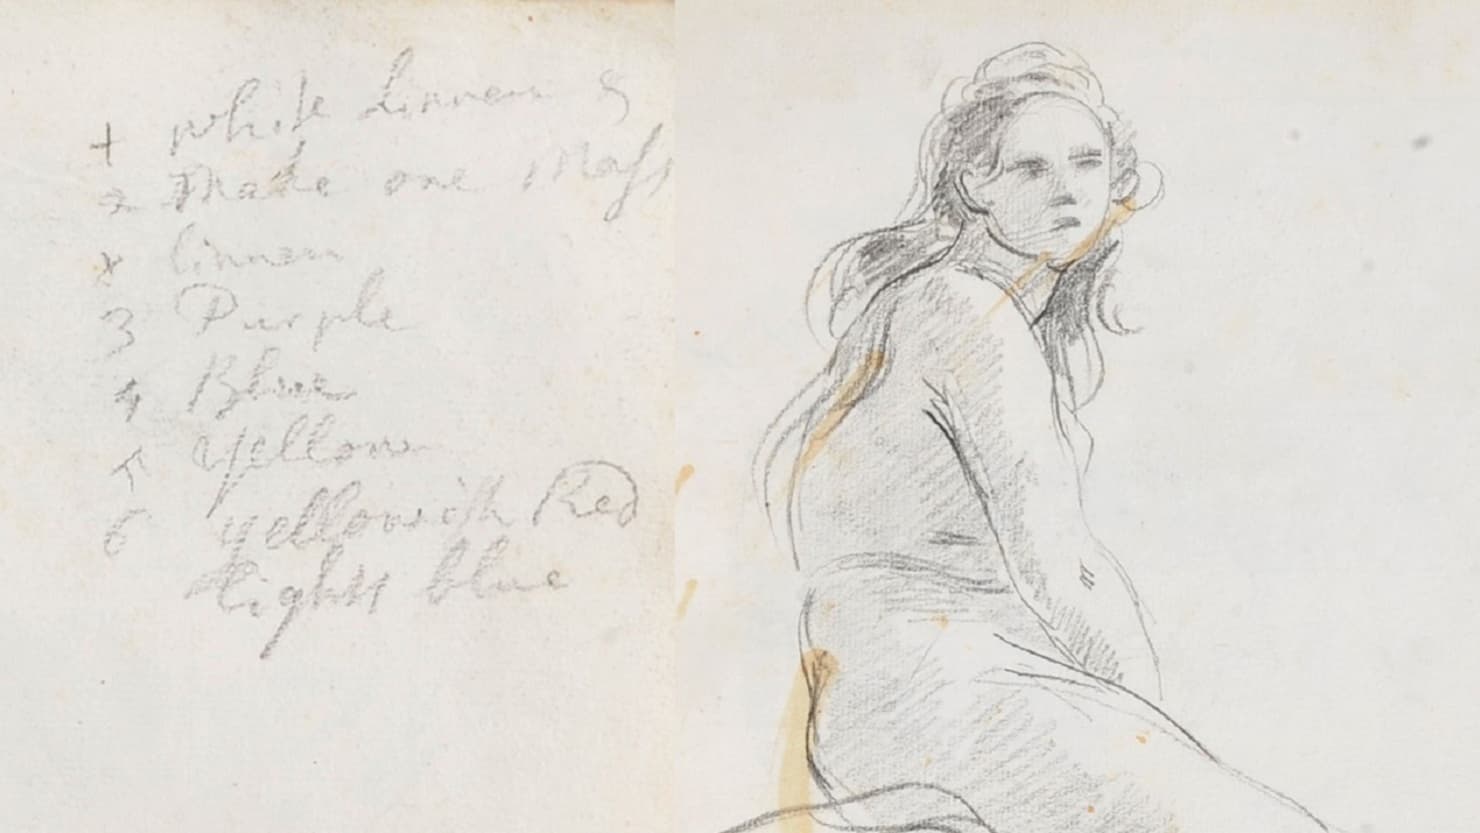 + white Linnen &
2 Make one Mass
x linnen
3 Purple
4 Blue
5 Yellow
6 yellowish Red
Light blue